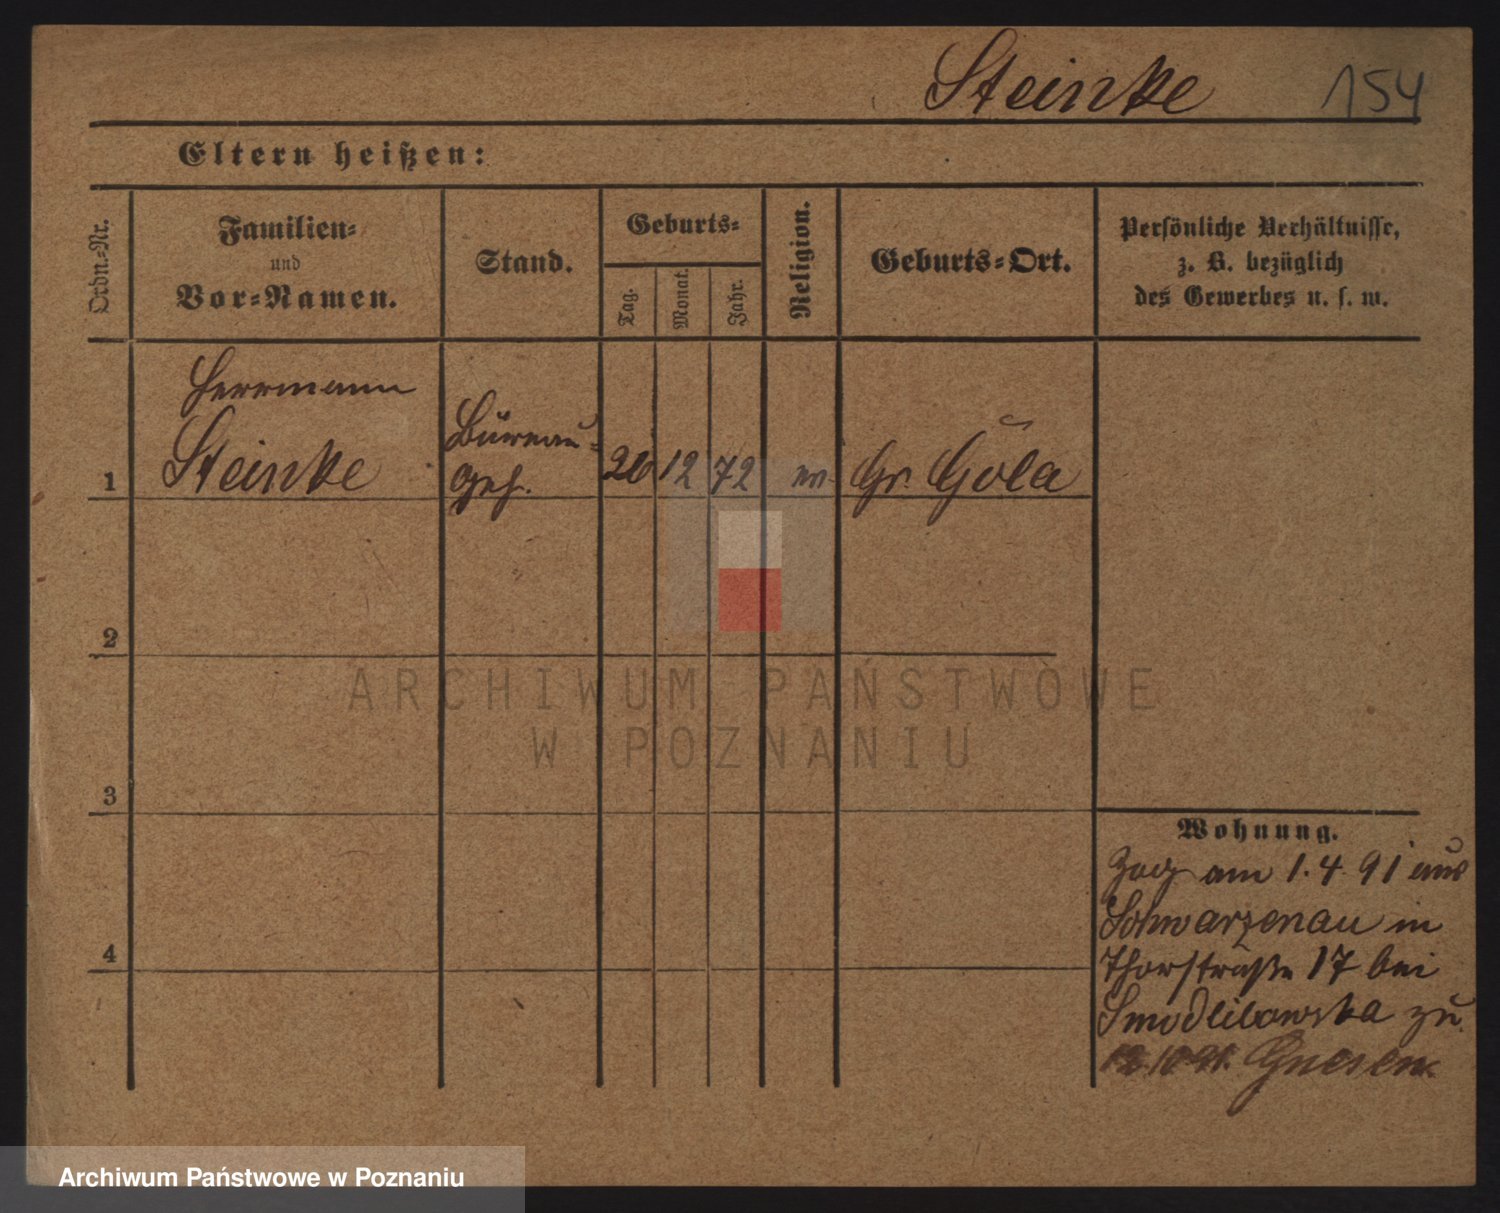 Steinke 154
Eltern heißen:
Ordn.-Nr.
Familien-
und
Vor-Namen.
Stand.
Geburts-
Tag.
Monat.
Jahr.
Religion.
Geburts-Ort.
Persönliche Verhältnisse,
z. B. bezüglich
des Gewerbes u. s. w.
Herrmann
Steinke
Büreau-
Geh.
1 12 72 Gr. Gola
2
3
4
Wohnung.
Zog am 1. 4. 91 aus
Schwarzenau in
Thorstraße 17 bei
Smodlibowska zu.
Gnesen.
ARCHIWUM PAŃSTWOWE
W POZNANIU
Archiwum Państwowe w Poznaniu